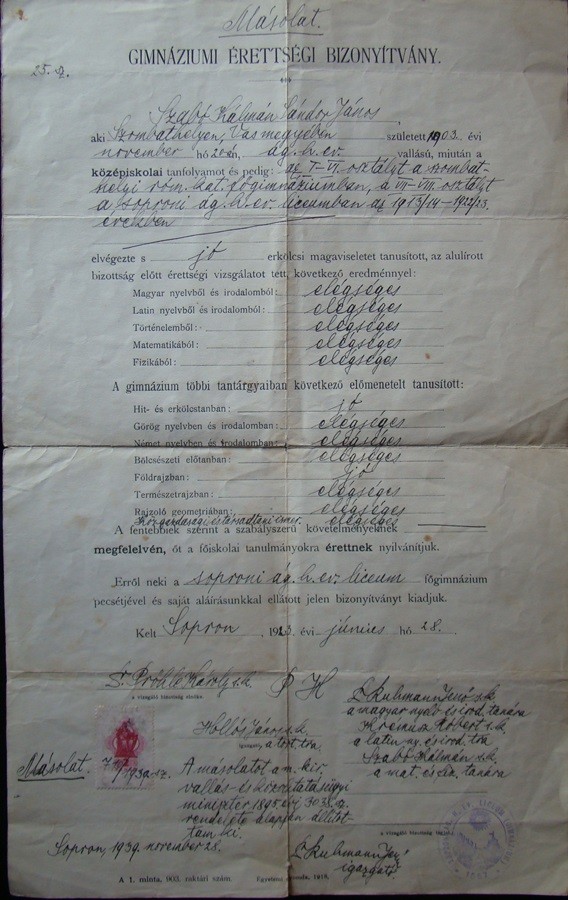 Másolat.
GIMNÁZIUMI ÉRETTSÉGI BIZONYÍTVÁNY.
Szabó Kálmán Sándor János
aki Szombathelyen, Vas megyében született 1903. évi
november hó 20án, ág. h. ev. vallású, miután a
középiskolai tanfolyamot és pedig: az I-VI. osztályt a szombat-
helyi rom. kat. főgimnáziumban, a VII-VIII. osztályt
a soproni ág. h. ev. liceumban az 1913/14-1922/23.
években
elvégezte s jó erkölcsi magaviseletet tanusított, az alulírott
bizottság előtt érettségi vizsgálatot tett, következő eredménnyel:
Magyar nyelvből és irodalomból: elégséges
Latin nyelvből és irodalomból: elégséges
Történelemből: elégséges
Matematikából: elégséges
Fizikából: elégséges
A gimnázium többi tantárgyaiban következő előmenetelt tanusított:
Hit- és erkölcstanban: jó
Görög nyelvben és irodalomban: elégséges
Német nyelvben és irodalomban: elégséges
Bölcsészeti előtanban: elégséges
Földrajzban: jó
Természetrajzban: elégséges
Rajzoló geometriában: elégséges
Közgazdasági és társadtani ismer. elégséges
A fentebbiek szerint a szabályszerű követelményeknek
megfelelvén, őt a főiskolai tanulmányokra érettnek nyilvánítjuk.
Erről neki a soproni ág. h. ev. liceum főgimnázium
pecsétjével és saját aláírásunkkal ellátott jelen bizonyítványt kiadjuk.
Kelt Sopron, 1923. évi június hó 28.
D. Pröhle Károly s.k. P H
a vizsgáló bizottság elnöke.
Hollós János s.k.
igazgató, a tört. tra.
Kuhmann Jenő s.k.
a magyar nyelv és irod. tanára
Robert s.k.
a latin ny. és irod. tra
Szabó Kálmán s.k.
a mat. és fiz. tanára
Másolat.
A másolatot a m. kir.
vallás- és közoktatásügyi
miniszter 1895 évi
rendelete alapján állítot-
tam ki.
a vizsgáló bizottság
Sopron, 1939. november 28.
Kuhmann Jenő
igazgató
A 1. minta. 903. raktári szám.